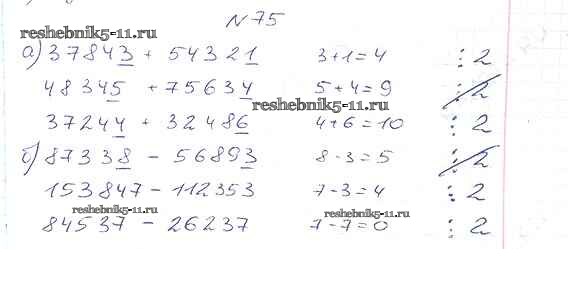 №75
reshebnik5-11.ru
а) 37843 + 54321 3+1=4 ⋮ 2
48345 + 75634 5+4=9 ⋮ 2
reshebnik5-11.ru
37244 + 32486 4+6=10 ⋮ 2
б) 87338 - 56893 8-3=5 ⋮ 2
153847 - 112353 7-3=4 ⋮ 2
reshebnik5-11.ru reshebnik5-11.ru
84537 - 26237 7-7=0 ⋮ 2